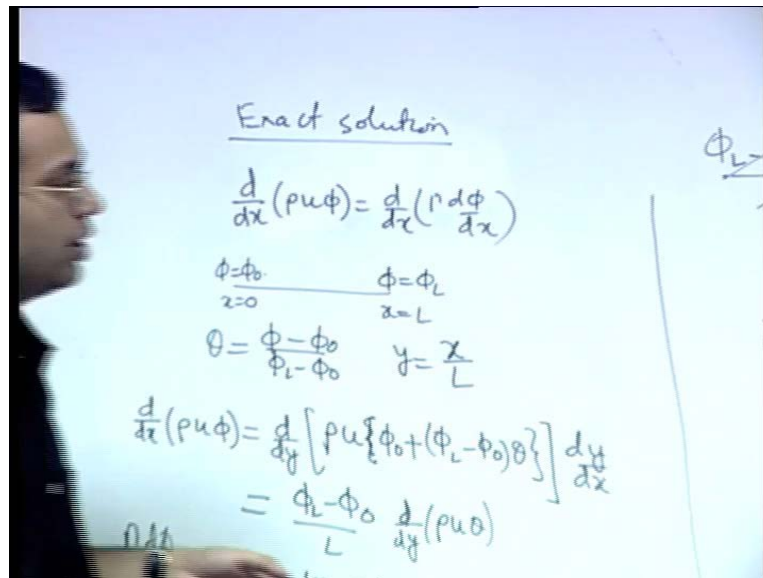 Exact solution
d/dx (ρuϕ) = d/dx (Γ dϕ/dx)
ϕ=ϕ₀ ϕ=ϕ_L
x=0 x=L
θ = (ϕ-ϕ₀)/(ϕ_L-ϕ₀) y = x/L
d/dx (ρuϕ) = d/dy [ρu{ϕ₀+(ϕ_L-ϕ₀)θ}] dy/dx
= (ϕ_L-ϕ₀)/L d/dy (ρuθ)
Γdϕ
ϕ_L